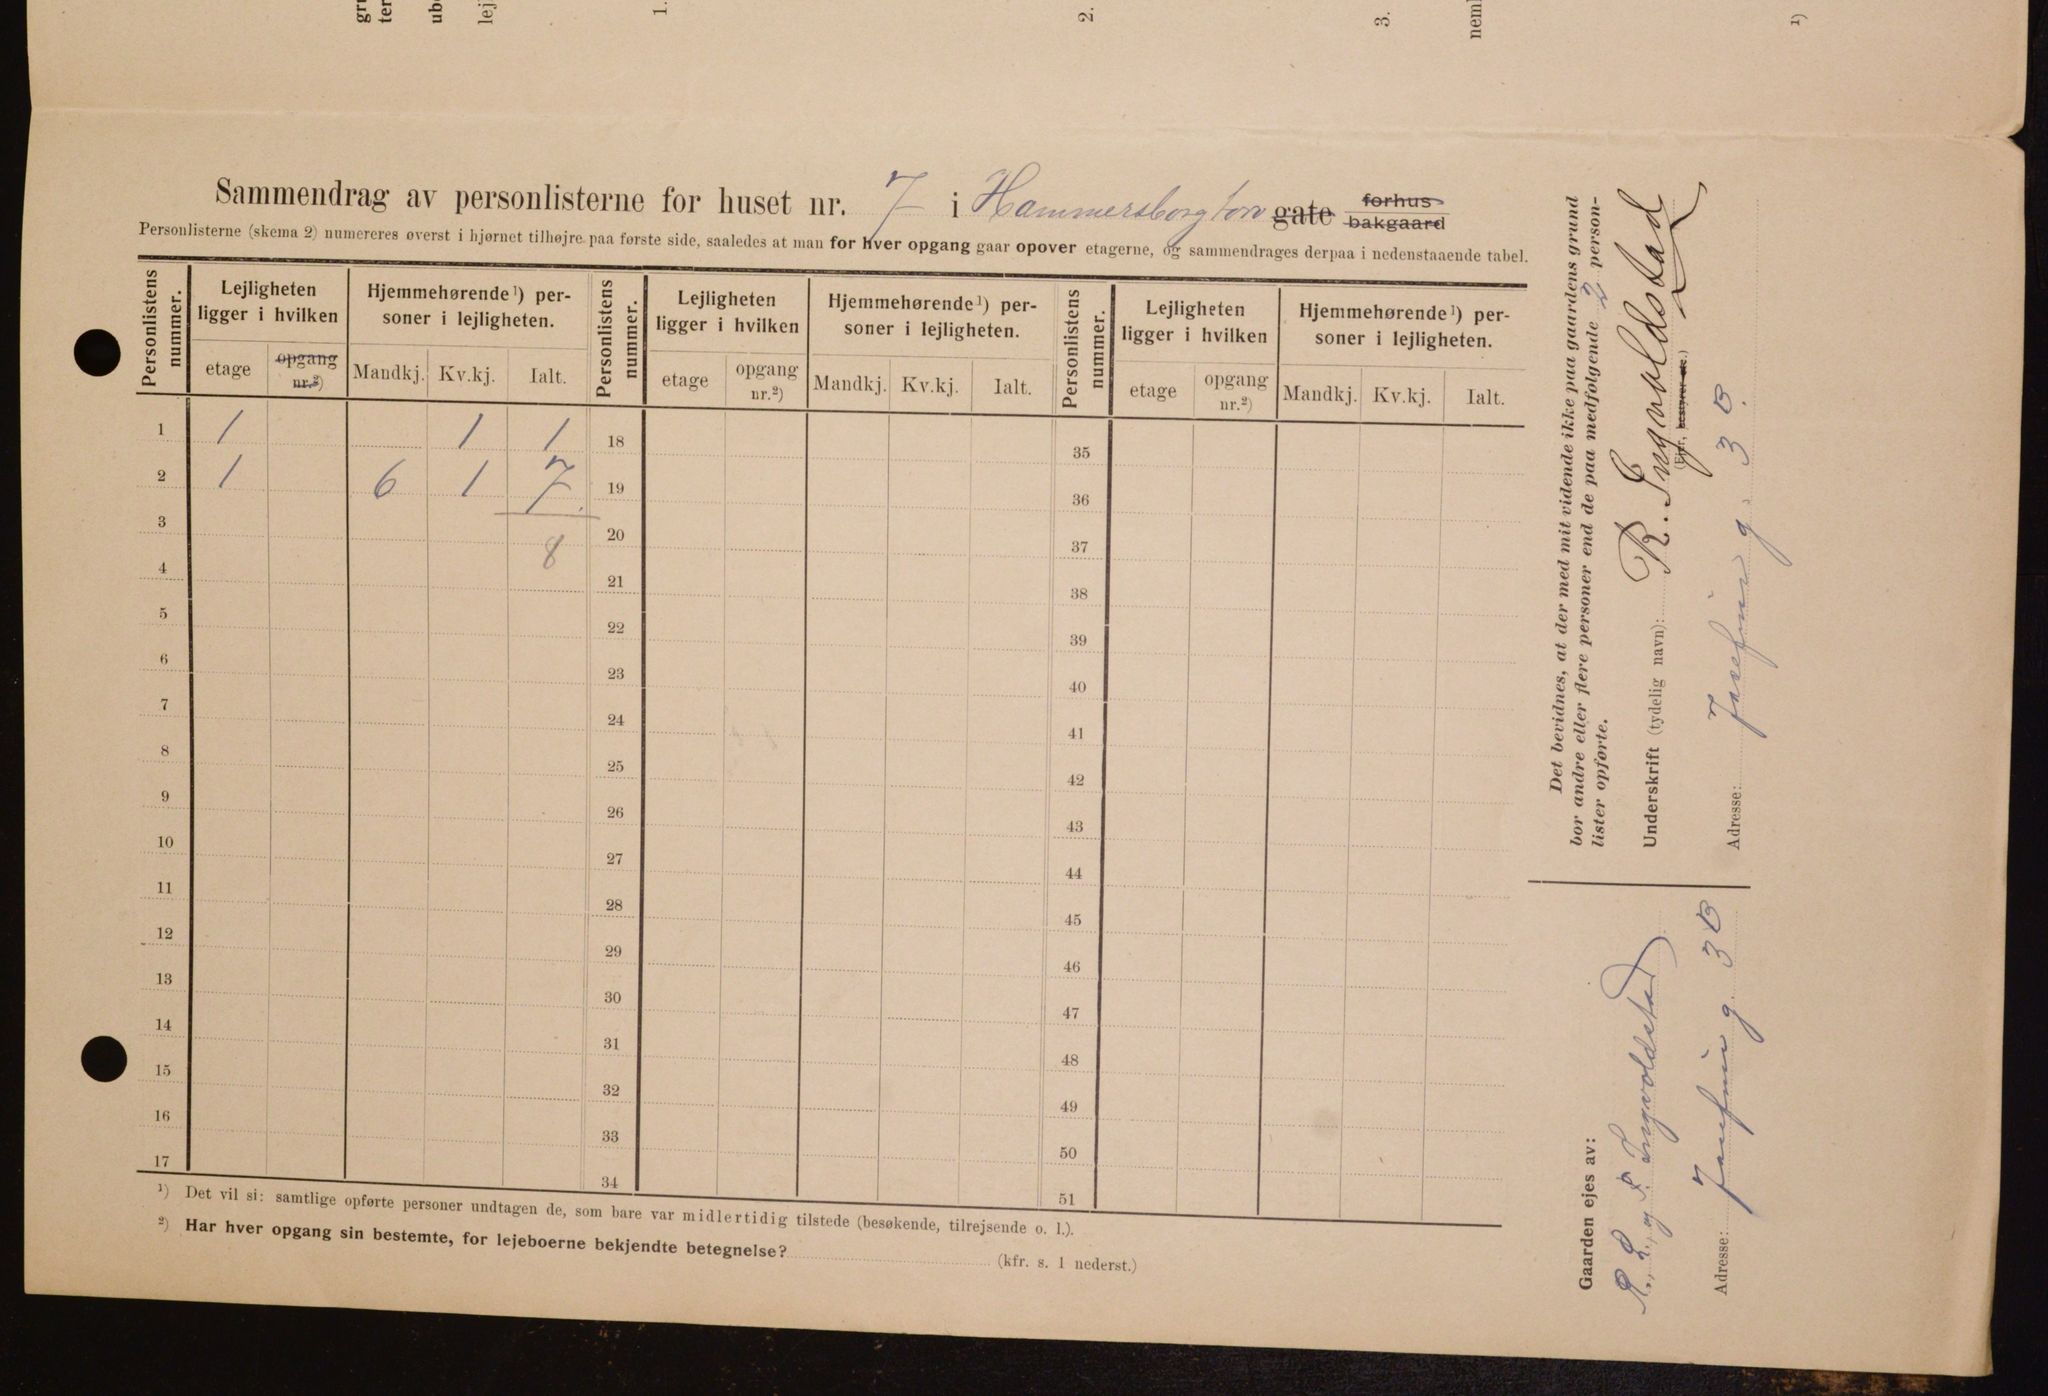 gru
ter
ube
lej
1.
2.
3.
neml
1)
Sammendrag av personlisterne for huset nr. 7 i Hammersborg torv gate forhus bakgaard
Personlisterne (skema 2) numereres øverst i hjørnet tilhøjre paa første side, saaledes at man for hver opgang gaar opover etagerne, og sammendrages derpaa i nedenstaaende tabel.
Personlistens nummer.
Lejligheten ligger i hvilken
Hjemmehørende¹) personer i lejligheten.
Personlistens nummer.
Lejligheten ligger i hvilken
Hjemmehørende¹) personer i lejligheten.
Personlistens nummer.
Lejligheten ligger i hvilken
Hjemmehørende¹) personer i lejligheten.
etage opgang nr.²) Mandkj. Kv.kj. Ialt. etage opgang nr.²) Mandkj. Kv.kj. Ialt. etage opgang nr.²) Mandkj. Kv.kj. Ialt.
1 1 1 1 18 35
2 1 6 1 7 19 36
3 8 20 37
4 21 38
5 22 39
6 23 40
7 24 41
8 25 42
9 26 43
10 27 44
11 28 45
12 29 46
13 30 47
14 31 48
15 32 49
16 33 50
17 34 51
¹) Det vil si: samtlige opførte personer undtagen de, som bare var midlertidig tilstede (besøkende, tilrejsende o. l.).
²) Har hver opgang sin bestemte, for lejeboerne bekjendte betegnelse? (kfr. s. 1 nederst.)
Det bevidnes, at der med mit vidende ikke paa gaardens grund
bor andre eller flere personer end de paa medfølgende 2 person-
lister opførte.
Underskrift (tydelig navn): R. Ingvoldstad
(Ejer, bestyrer etc.)
Adresse: Josefin g. 3 B.
Gaarden ejes av:
R., L., og P. Ingvoldstad
Adresse: Josefin g. 3 B